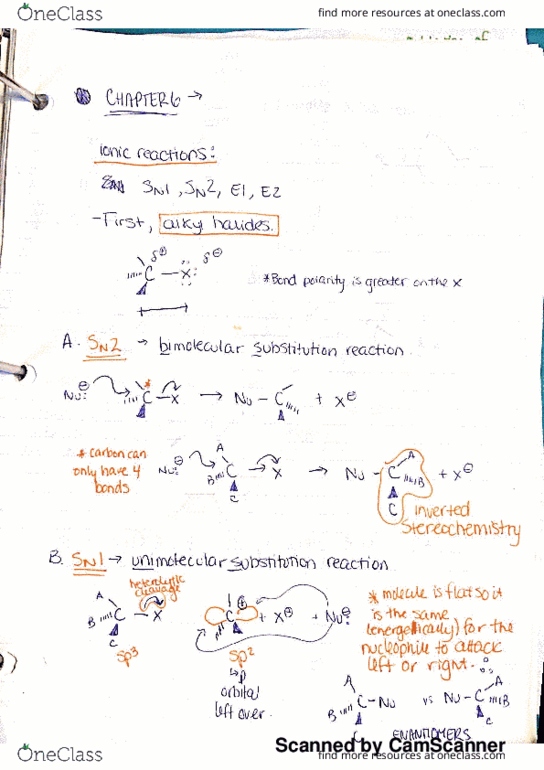 OneClass
find more resources at oneclass.com
CHAPTER 6 →
Ionic reactions:
SN1, SN2, E1, E2
-First, alky halides.
δ⊕ δ⊖
C - X:
*Bond polarity is greater on the X
A. SN2 → bimolecular substitution reaction
Nu:⊖ C - X → Nu - C + X⊖
* carbon can only have 4 bonds
Nu:⊖ A B C C X → Nu - C A B C + X⊖
inverted Stereochemistry
B. SN1 → unimolecular substitution reaction
heterolytic cleavage
A B C C - X
C⊕ + X⊖ + Nu:⊖
sp3
sp2
↳ p orbital left over.
* molecule is flat so it is the same (energetically) for the nucleophile to attack left or right.
A B C - Nu vs Nu - C A B C
ENANTIOMERS
Scanned by CamScanner
OneClass
find more resources at oneclass.com